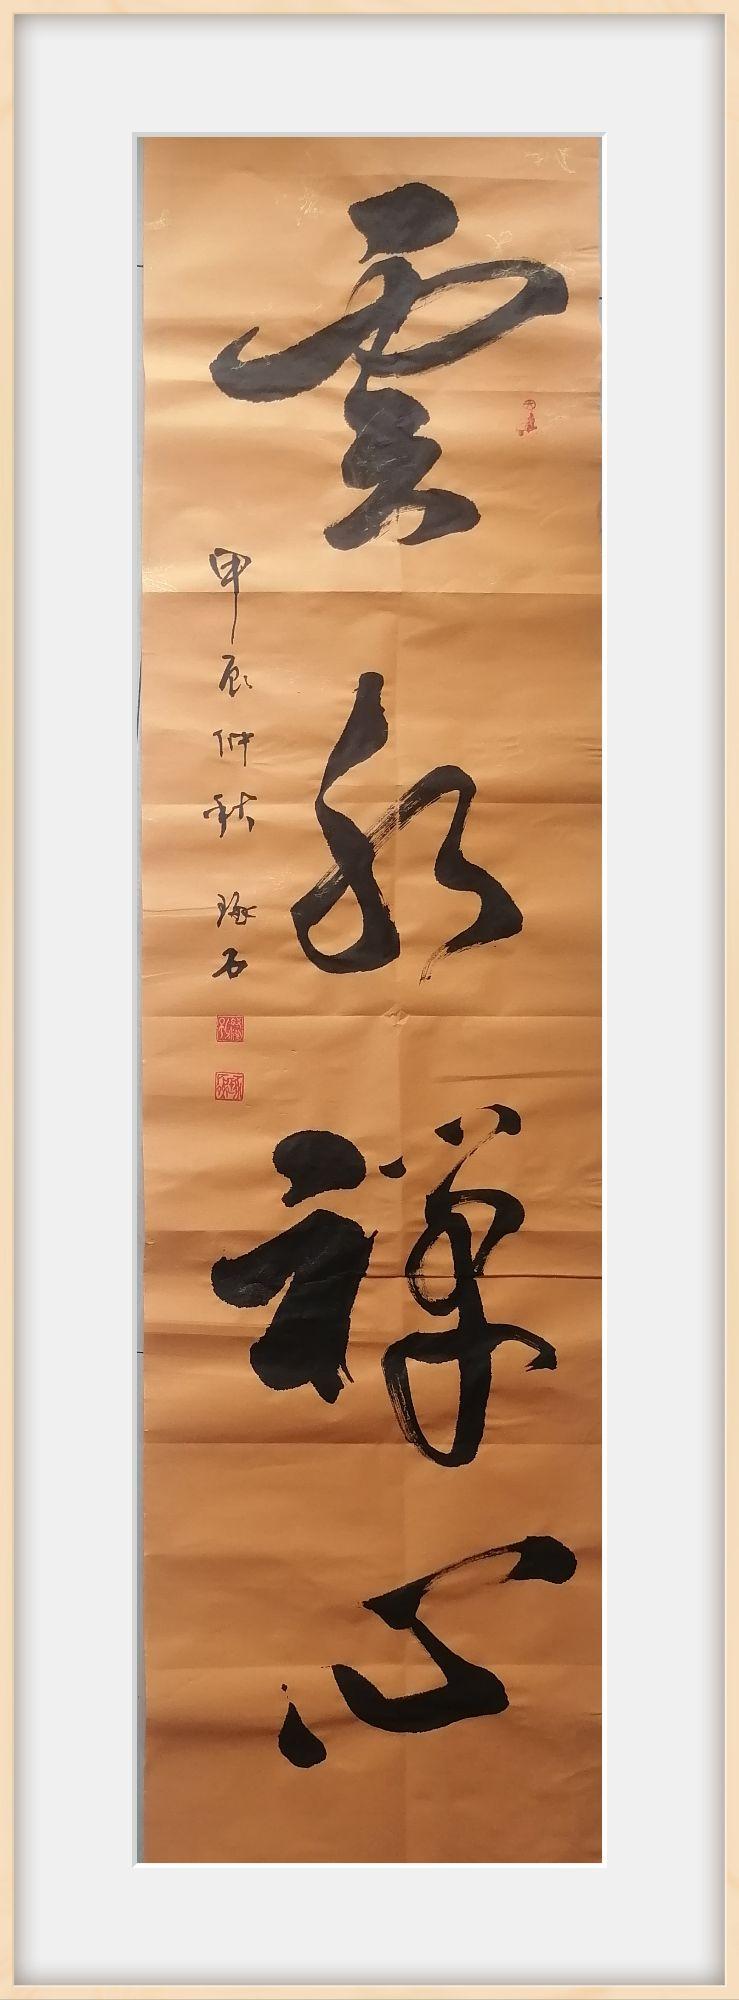 雲水禅心
甲辰仲秋 琢石